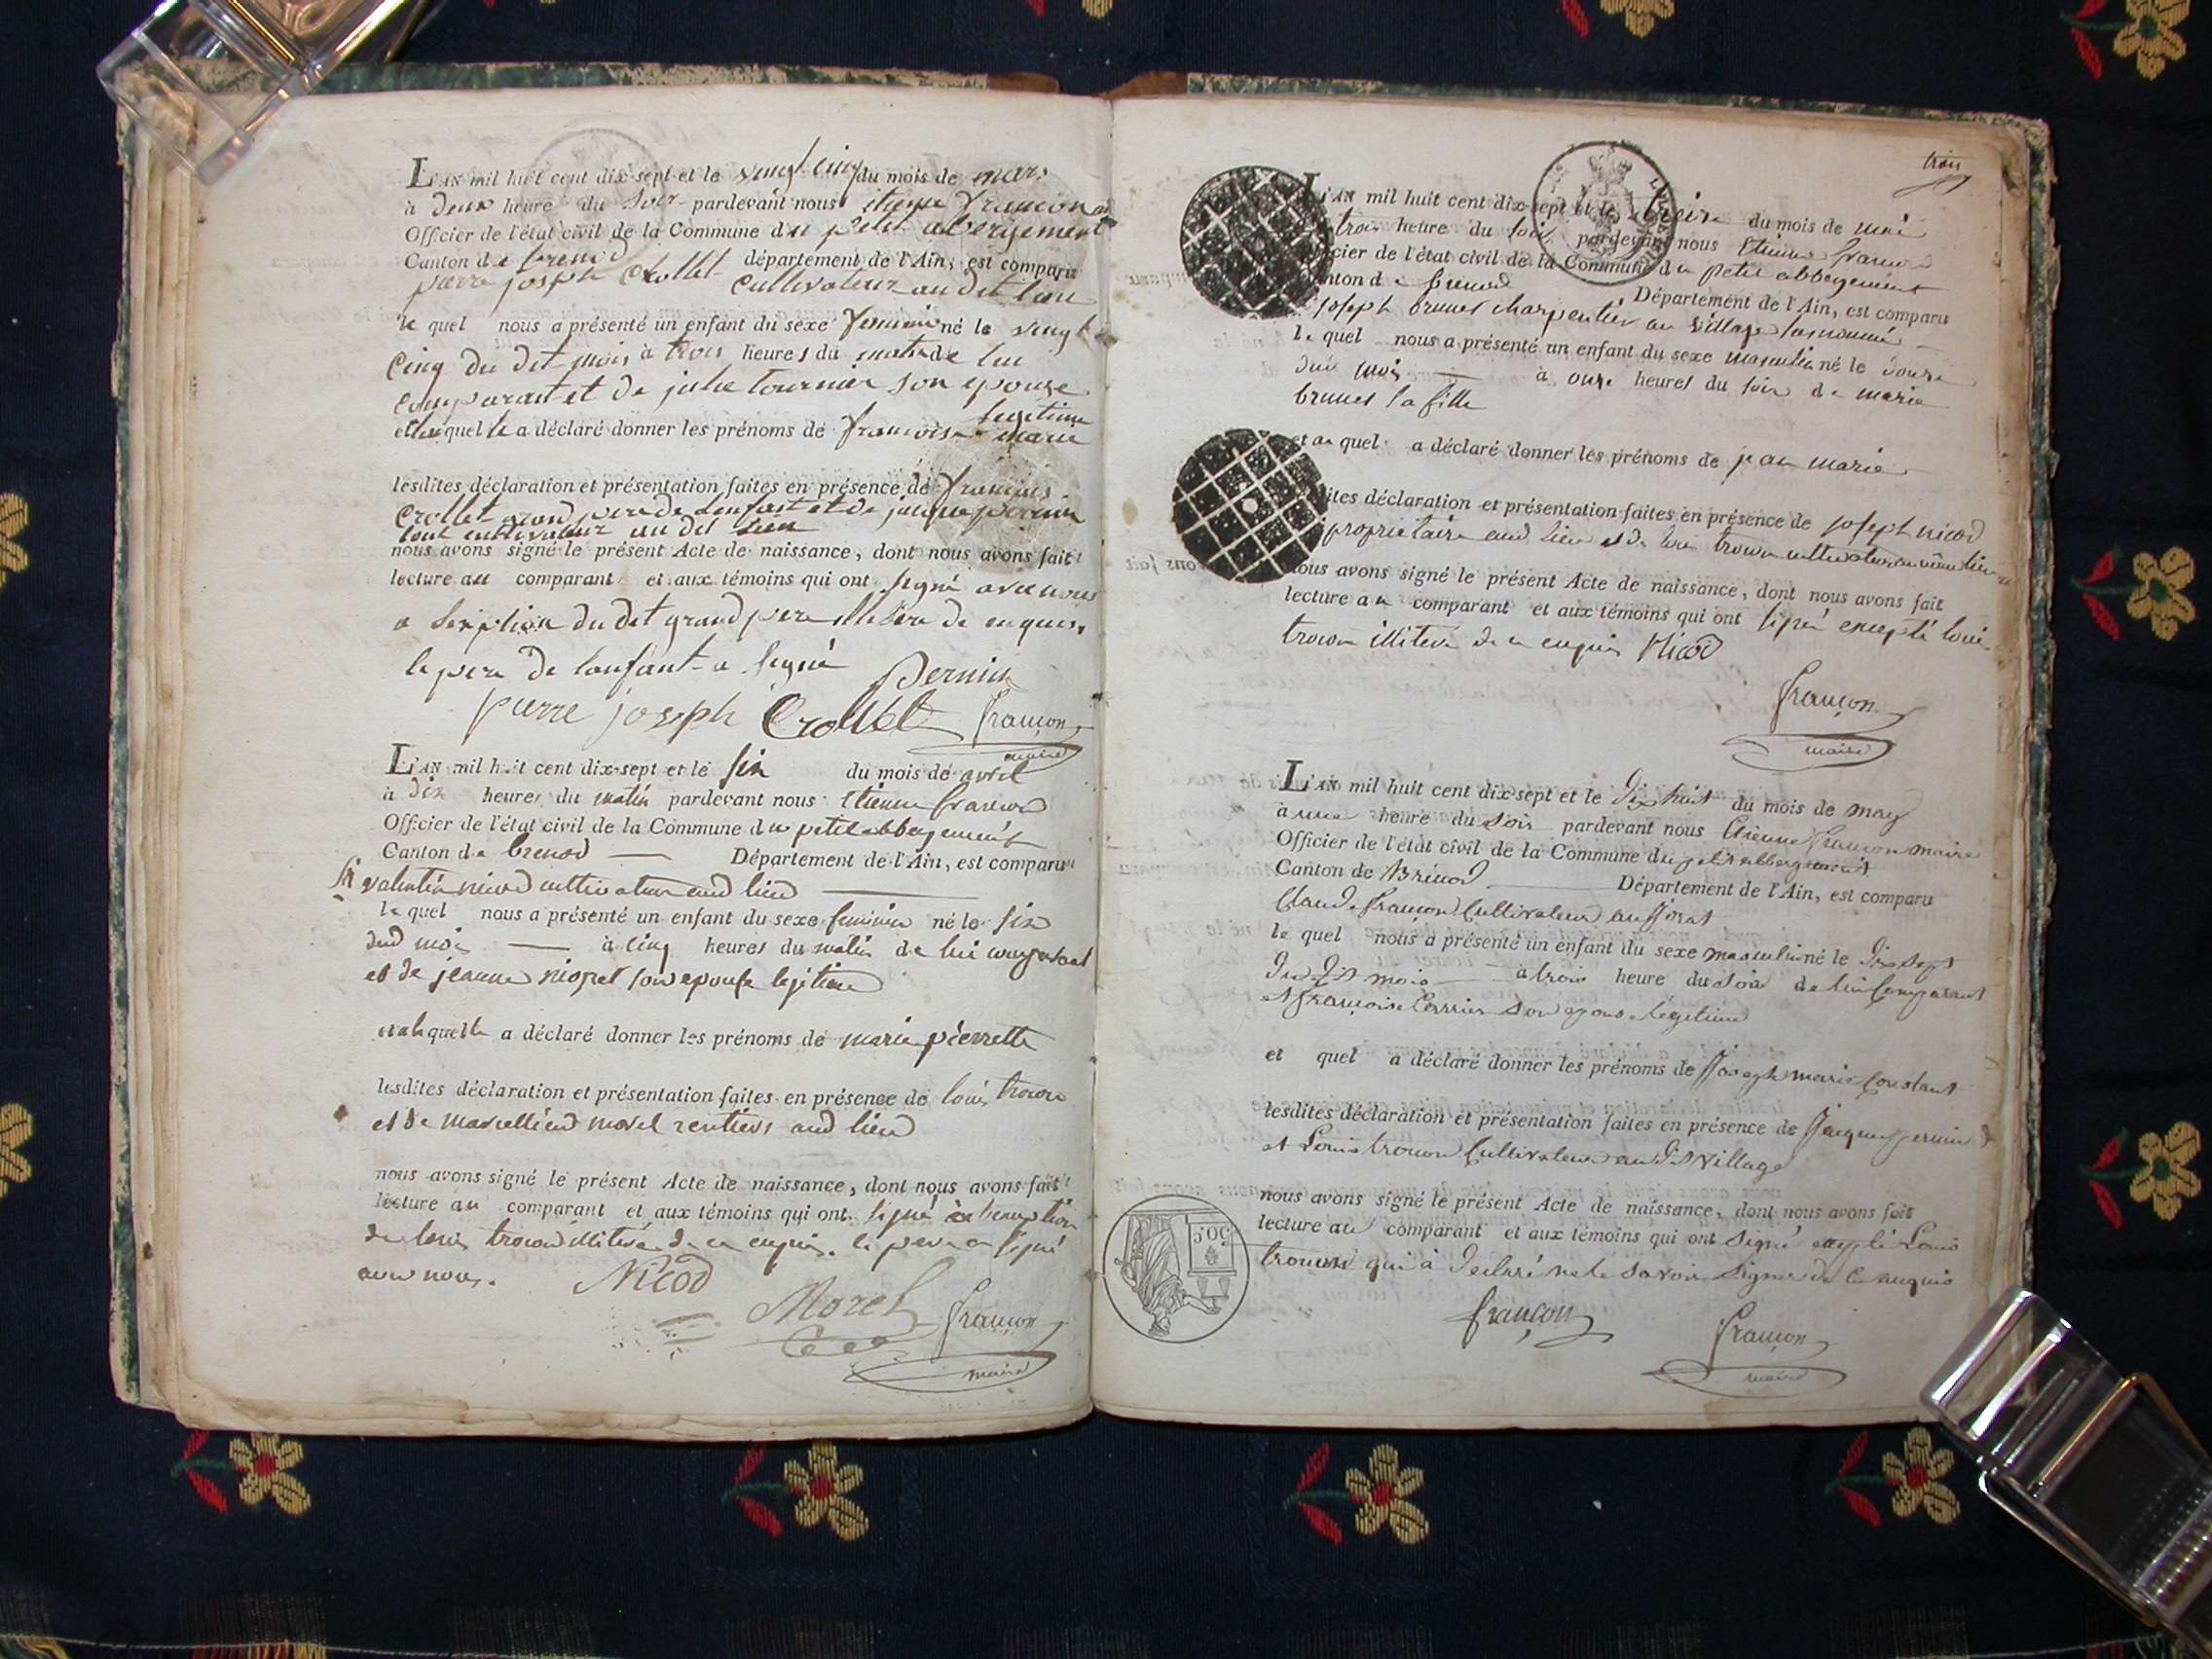 L'AN mil huit cent dix-sept et le vingt cinq du mois de mars
à deux heure du soir pardevant nous etienne françon
Officier de l'état civil de la Commune du petit abergement
Canton de brenod département de l'Ain, est comparu
pierre joseph Crollet cultivateur au dit lieu
le quel nous a présenté un enfant du sexe feminin né le vingt
cinq du dit mois à trois heures du matin de lui
comparant et de julie tournier son epouse
legitime
et auquel a déclaré donner les prénoms de francoise marie
lesdites déclaration et présentation faites en présence de françois
Crollet grand pere de lenfant et de jacque pernin
tout cultivateur au dit lieu
nous avons signé le présent Acte de naissance, dont nous avons fait
lecture au comparant et aux témoins qui ont signé avec nous
a lexeption du dit grand pere illitere de enquis,
le pere de lanfant a signé Pernin
pierre joseph Crollet françon
maire
L'AN mil huit cent dix-sept et le six du mois de avril
à dix heures du matin pardevant nous etienne françon
Officier de l'état civil de la Commune du petit abbergement
Canton de brenod Département de l'Ain, est comparu
valentin nicod cultivateur aud lieu
le quel nous a présenté un enfant du sexe feminin né le six
dud mois à cinq heures du matin de lui comparant
et de jeanne niogret son epouse legitime
et a laquelle a déclaré donner les prénoms de marie pierrette
lesdites déclaration et présentation faites en présence de louis trocon
et de marcellien morel rentiers aud lieu
nous avons signé le présent Acte de naissance, dont nous avons fait
lecture au comparant et aux témoins qui ont signé à lexception
de louis trocon illiteré de ce enquis. le pere a signé
avec nous. Nicod
Morel françon
maire
trois
L'AN mil huit cent dix-sept et le treize du mois de mai
trois heure du soir pardevant nous etienne françon
cier de l'état civil de la Commune du petit abbergement
nton de brenod Département de l'Ain, est comparu
joseph brunet charpentier au village susnommé
le quel nous a présenté un enfant du sexe masculin né le douze
dud mois à onze heures du soir de marie
brunet sa fille
et au quel a déclaré donner les prénoms de jean marie
dites déclaration et présentation faites en présence de joseph nicod
proprietaire aud lieu et de louis trocon cultivateur au même lieu
nous avons signé le présent Acte de naissance, dont nous avons fait
lecture au comparant et aux témoins qui ont signé excepté louis
trocon illiteré de ce enquis Nicod
françon
maire
L'AN mil huit cent dix-sept et le dix huit du mois de may
à une heure du soir pardevant nous Etienne françon maire
Officier de l'état civil de la Commune du petit abbergement
Canton de Brenod Département de l'Ain, est comparu
Claude françon Cultivateur au Jorat
le quel nous a présenté un enfant du sexe masculin né le dix sept
du dit mois à trois heure du soir de lui Comparant
et françoise Perrier son epouse légitime
et quel a déclaré donner les prénoms de Joseph marie Constant
lesdites déclaration et présentation faites en présence de Jacque pernin
et Louis trocon Cultivateur au dit village
nous avons signé le présent Acte de naissance, dont nous avons fait
lecture au comparant et aux témoins qui ont signé excepté Louis
trocon qui à declaré ne le savoir signer de ce enquis
françon françon
maire
50 C